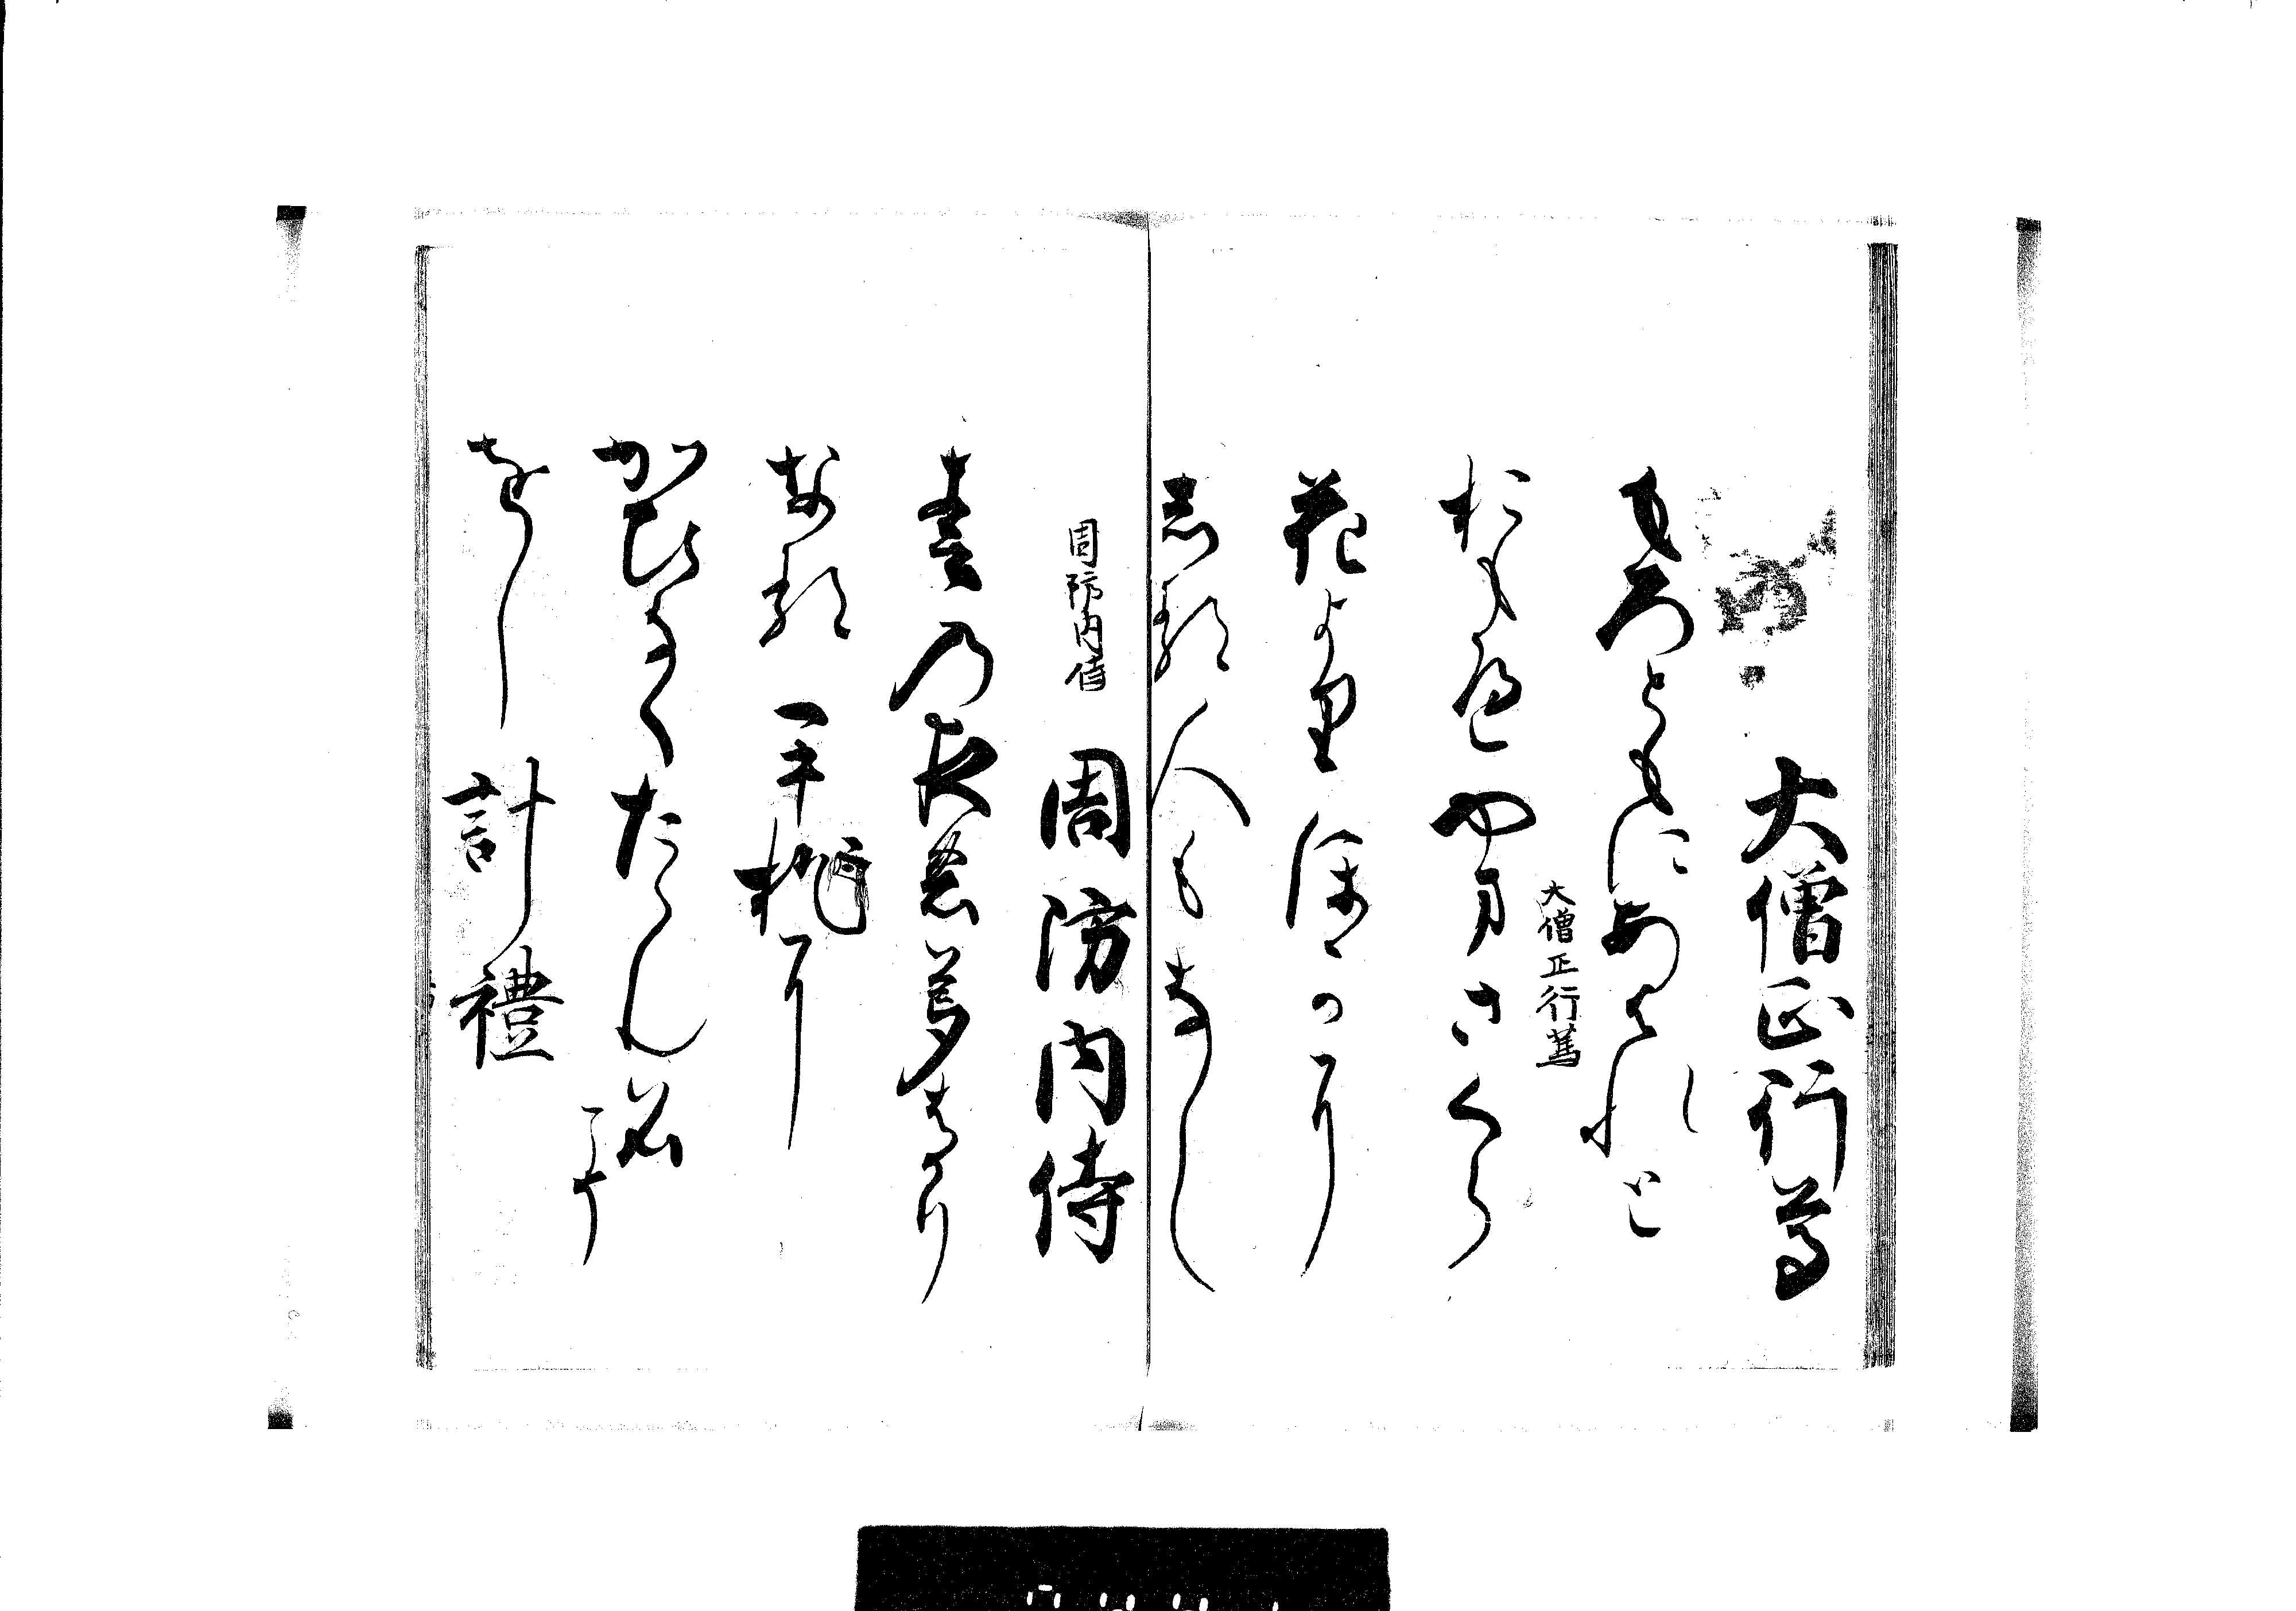 大僧正行尊
もろともにあはれと
大僧正行篤
おもへやまさくら
花よりほかに
志る人もなし
周防内侍
周防内侍
春乃夜の夢はかり
なる手枕に
かひなくたゝん名
こそ
をし計禮